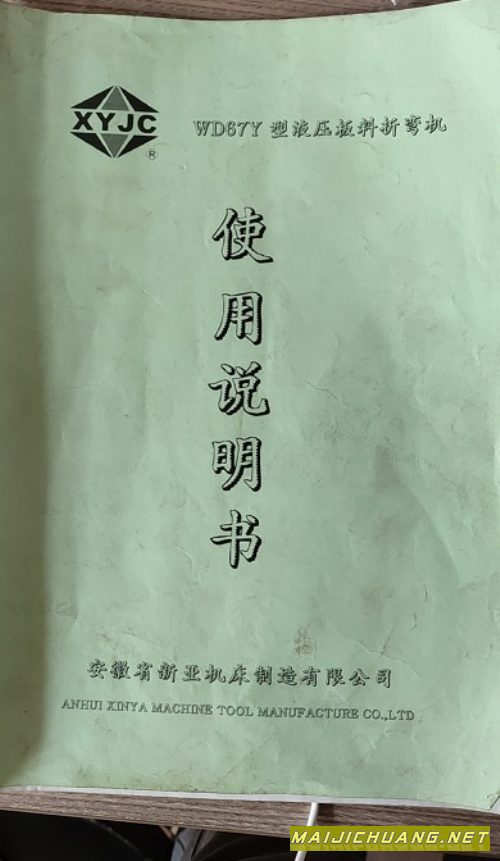 XYJC
®
WD67Y 型液压板料折弯机
使
用
说
明
书
安徽省新亚机床制造有限公司
ANHUI XINYA MACHINE TOOL MANUFACTURE CO.,LTD
MAIJICHUANG.NET